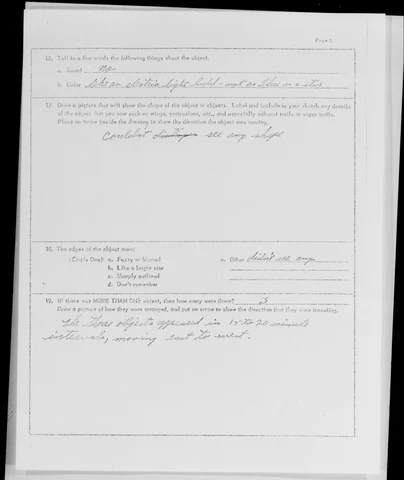 Page 3
16. Tell in a few words the following things about the object.
a. Sound No
b. Color like an electric light bulb - not as blue as a star
17. Draw a picture that will show the shape of the object or objects. Label and include in your sketch any details
of the object that you saw such as wings, protrusions, etc., and especially exhaust trails or vapor trails.
Place an arrow beside the drawing to show the direction the object was moving.
Couldn't see any shape
18. The edges of the object were:
(Circle One) a. Fuzzy or blurred e. Other didn't see any
b. Like a bright star
c. Sharply outlined
d. Don't remember
19. IF there was MORE THAN ONE object, then how many were there? 3
Draw a picture of how they were arranged, and put an arrow to show the direction that they were traveling.
The three objects appeared in 15 to 20 minute
intervals, moving east to west.